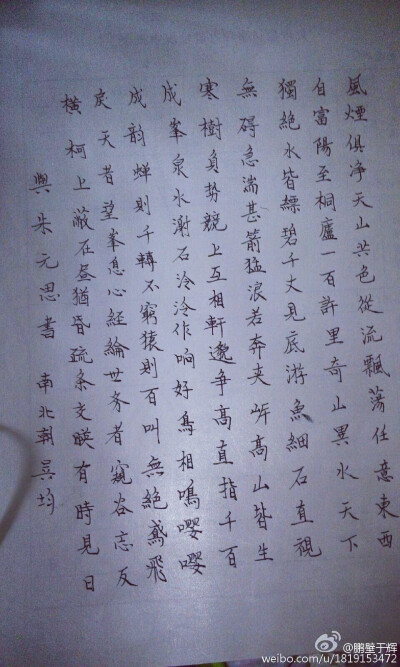 風煙俱净天山共色從流飄蕩任意東西
自富陽至桐廬一百許里奇山異水天下
獨絶水皆縹碧千丈見底游魚細石直視
無碍急湍甚箭猛浪若奔夹岸高山皆生
寒樹負势競上互相軒邈争高直指千百
成峯泉水激石泠泠作响好鳥相鳴嚶嚶
成韵蝉則千轉不窮猿則百叫無絶鳶飛
戾天者望峯息心經綸世务者窺谷忘反
横柯上蔽在昼猶昏疏条交暎有時見日
與朱元思書 南北朝 吴均
@鵬璧于辉
weibo.com/u/1819153472